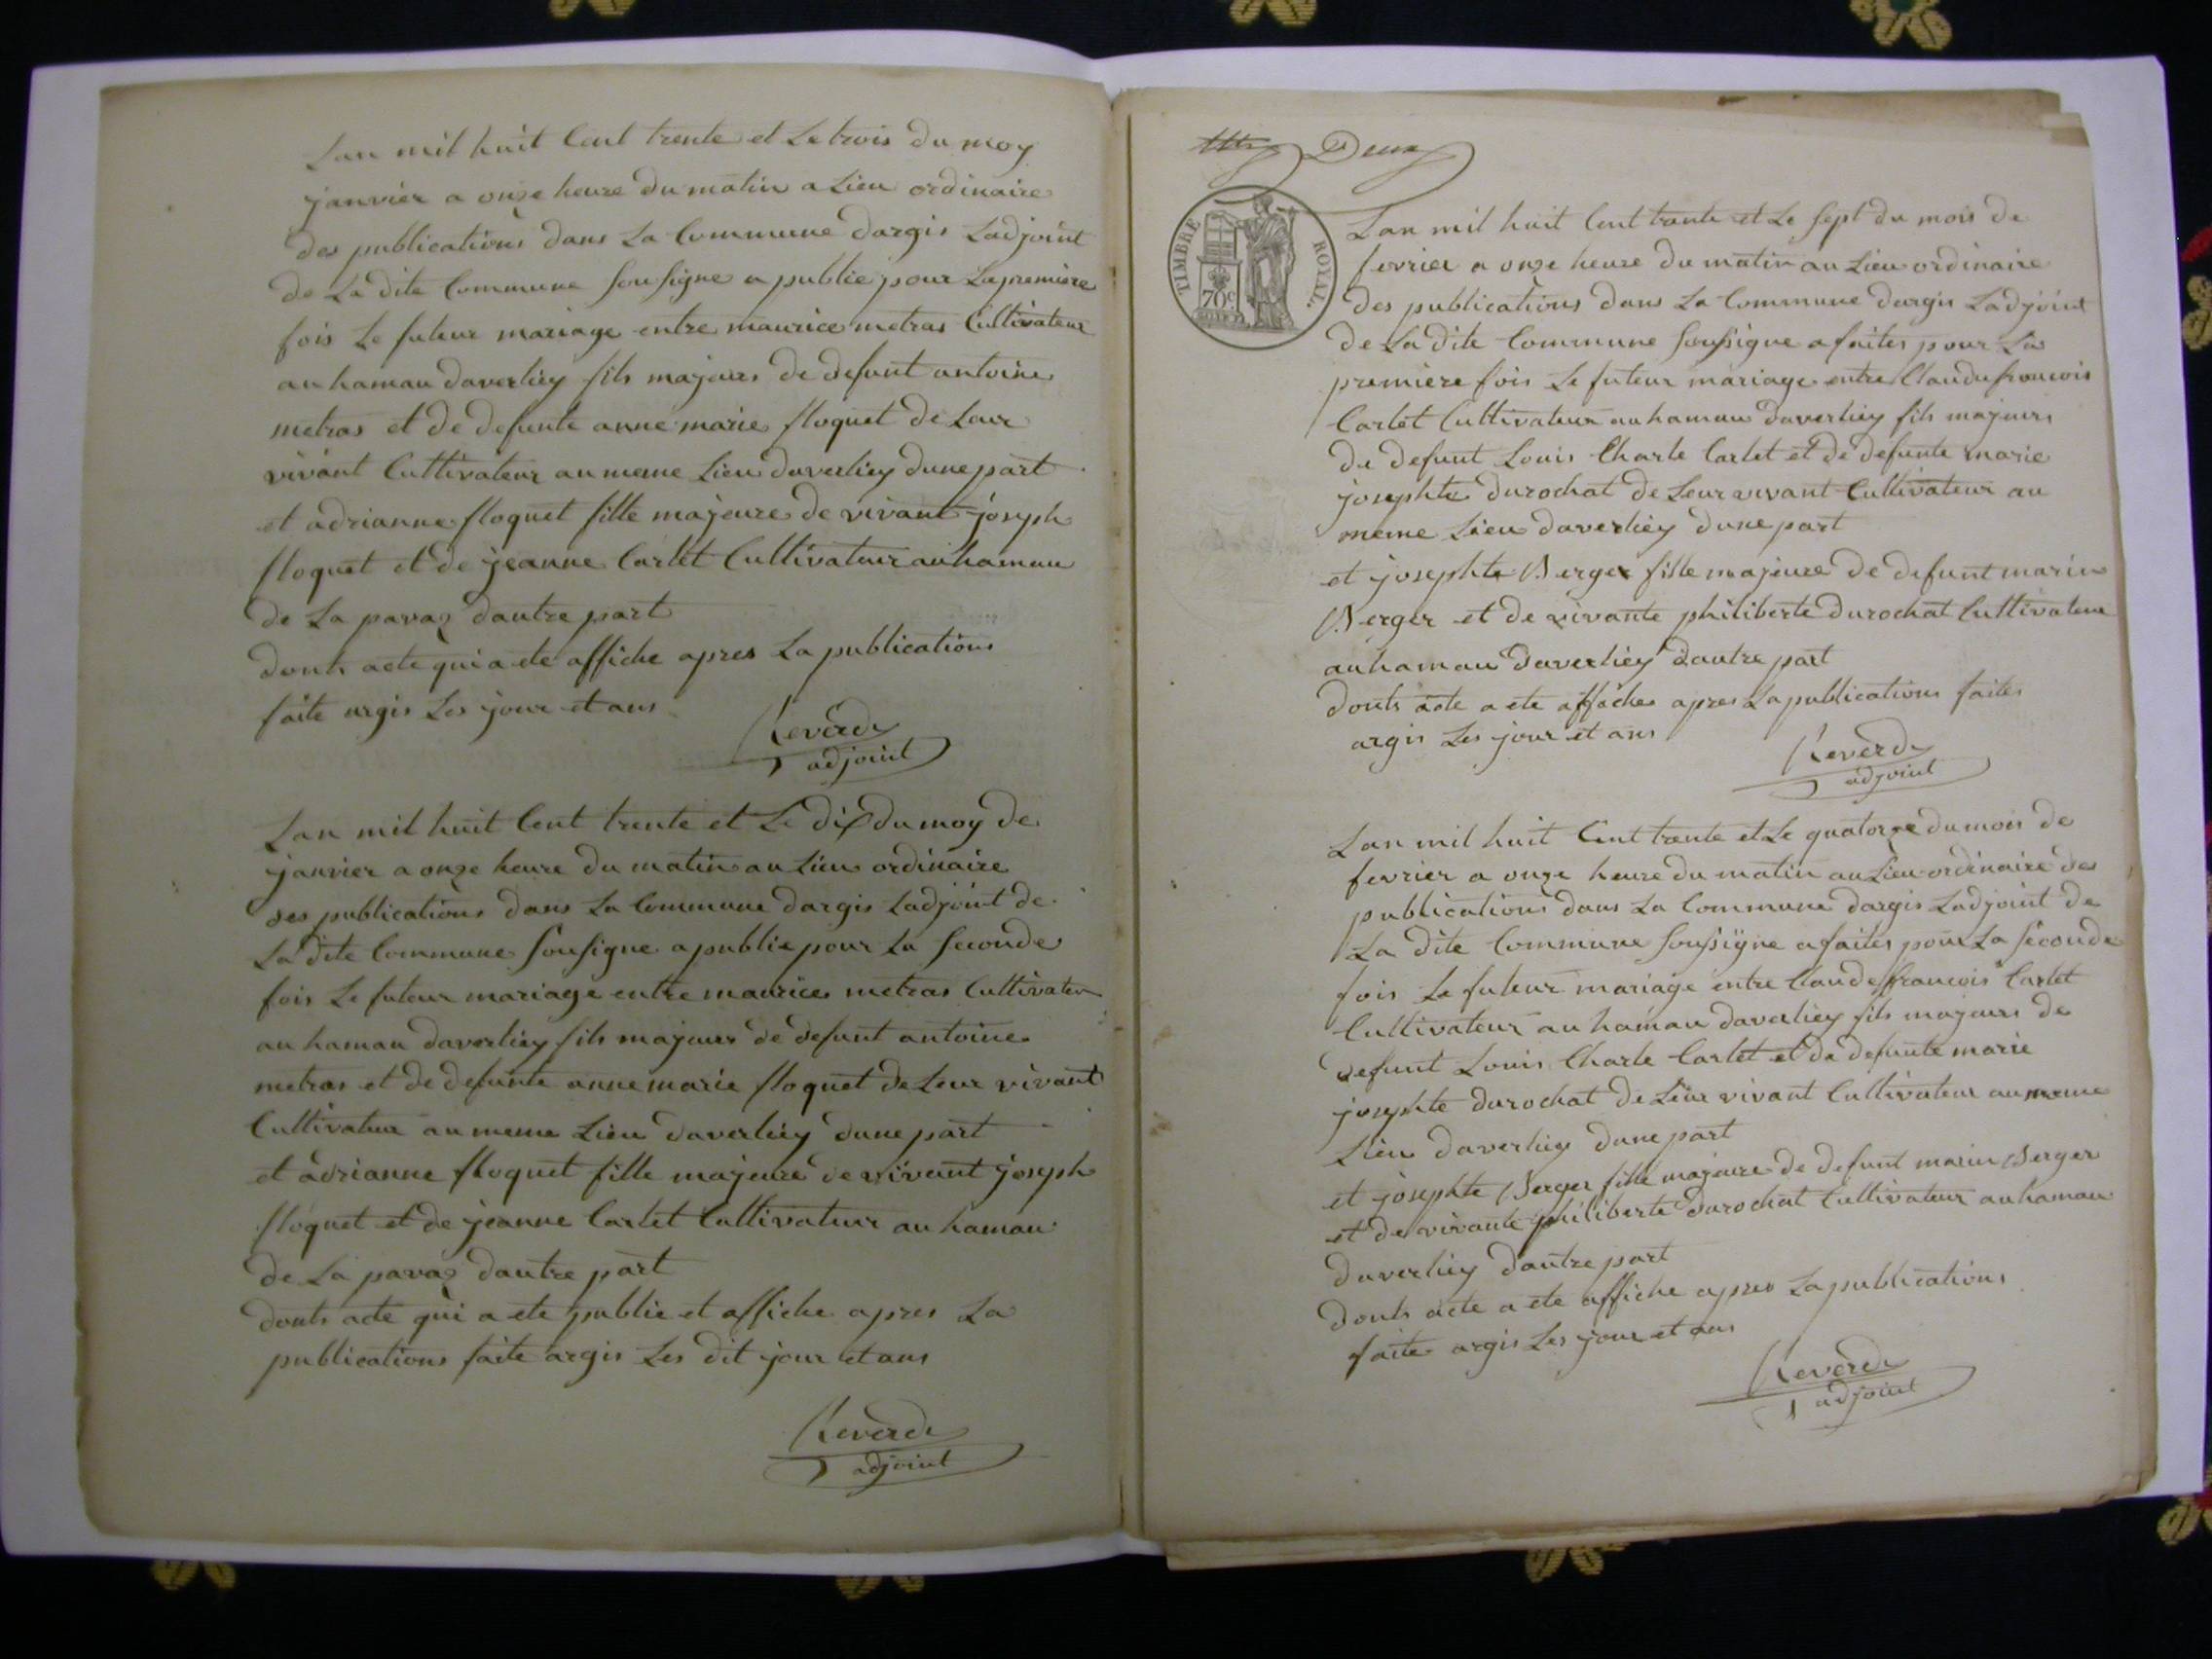 Lan mil huit Cent trente et Le trois du moy
janvier a onze heure du matin a Lieu ordinaire
des publications dans La Commune dargis Ladjoint
de La dite Commune Sousigne a publie pour La premiere
fois Le futeur mariage entre maurice metras Cultivateur
au hamau daverliey fils majeurs de defunt antoine
metras et de defunte anne marie floquet de Leur
vivant Cultivateur au meme Lieu daverliey dune part
et adrianne floquet fille majeure de vivant joseph
floquet et de jeanne Carlet Cultivateur au hamau
de La pavaz dautre part
donts acte qui a ete affiche apres La publications
faite argis Les jour et ans
Reverdi
adjoint
Lan mil huit Cent trente et Le dix du moy de
janvier a onze heure du matin au Lieu ordinaire
des publications dans La Commune dargis Ladjoint de
La dite Commune Sousigne a publie pour La Seconde
fois Le futeur mariage entre maurice metras Cultivateur
au hamau daverliey fils majeurs de defunt antoine
metras et de defunte anne marie floquet de Leur vivant
Cultivateur au meme Lieu daverliey dune part
et adrianne floquet fille majeure de vivant joseph
floquet et de jeanne Carlet Cultivateur au hamau
de La pavaz dautre part
donts acte qui a ete publie et affiche apres La
publications faite argis Les dit jour et ans
Reverdi
adjoint
Deux
TIMBRE ROYAL
70c
Lan mil huit Cent trente et Le Sept du mois de
fevrier a onze heure du matin au Lieu ordinaire
des publications dans La Commune dargis Ladjoint
de La dite Commune Sousigne a faites pour La
premiere fois Le futeur mariage entre Claude francois
Carlet Cultivateur au hamau daverliey fils majeurs
de defunt Louis Charle Carlet et de defunte marie
josephte durochat de Leur vivant Cultivateur au
meme Lieu daverliey dune part
et josephte Berger fille majeure de defunt marin
Berger et de vivante philiberte durochat Cultivateur
au hamau daverliey dautre part
donts acte a ete affiche apres La publications faites
argis Les jour et ans
Reverdi
adjoint
Lan mil huit Cent trente et Le quatorze du mois de
fevrier a onze heure du matin au Lieu ordinaire des
publications dans La Commune dargis Ladjoint de
La dite Commune Sousigne a faites pour La Seconde
fois Le futeur mariage entre Claude francois Carlet
Cultivateur au hamau daverliey fils majeurs de
defunt Louis Charle Carlet et de defunte marie
josephte durochat de Leur vivant Cultivateur au meme
Lieu daverliey dune part
et josephte Berger fille majeure de defunt marin Berger
et de vivante philiberte durochat Cultivateur au hamau
daverliey dautre part
donts acte a ete affiche apres La publications
faite argis Les jour et ans
Reverdi
adjoint